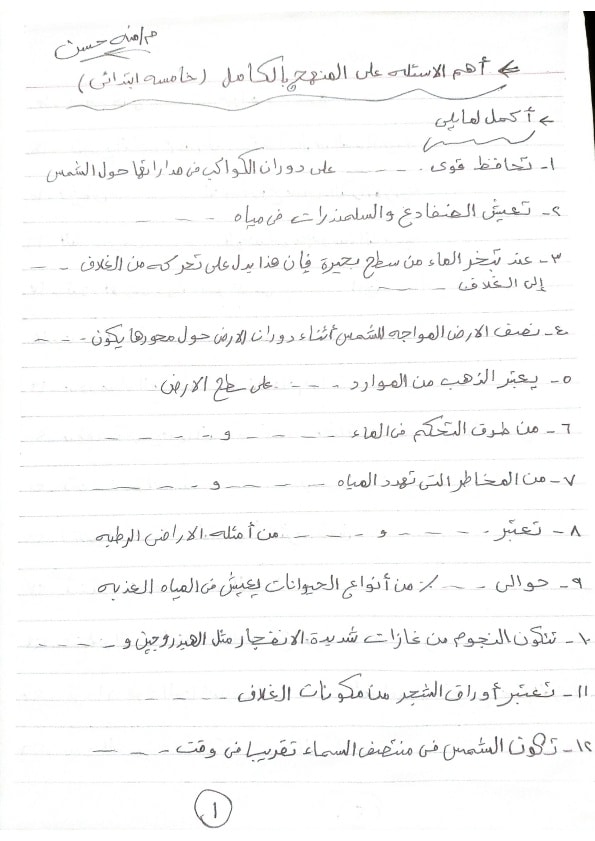 م/منه حسن
← أهم الاسئله على المنهج بالكامل (خامسه ابتدائى)
← أكمل مايلى
١- تحافظ قوى . - - - - على دوران الكواكب فى مداراتها حول الشمس
٢- تعيش الضفادع والسلمندرات فى مياه - - - -
٣- عند تبخر الماء من سطح بحيرة فإن هذا يدل على تحركه من الغلاف - -
إلى الغلاف - - - -
٤- نصف الارض المواجه للشمس أثناء دوران الارض حول محورها يكون - - - -
٥- يعتبر الذهب من الموارد - - - - على سطح الارض.
٦- من طرق التحكم فى الماء - - - - و - - - -
٧- من المخاطر التى تهدد المياه - - - - و - - - -
٨- تعتبر - - - - و - - - - من أمثله الاراضى الرطبه
٩- حوالى - - - - % من أنواع الحيوانات يعيش فى المياه العذبه
١٠- تتكون النجوم من غازات شديدة الانفجار مثل الهيدروجين و - - - -
١١- تعتبر أوراق الشجر من مكونات الغلاف - - - -
١٢- تكون الشمس فى منتصف السماء تقريبا فى وقت - - - -
١